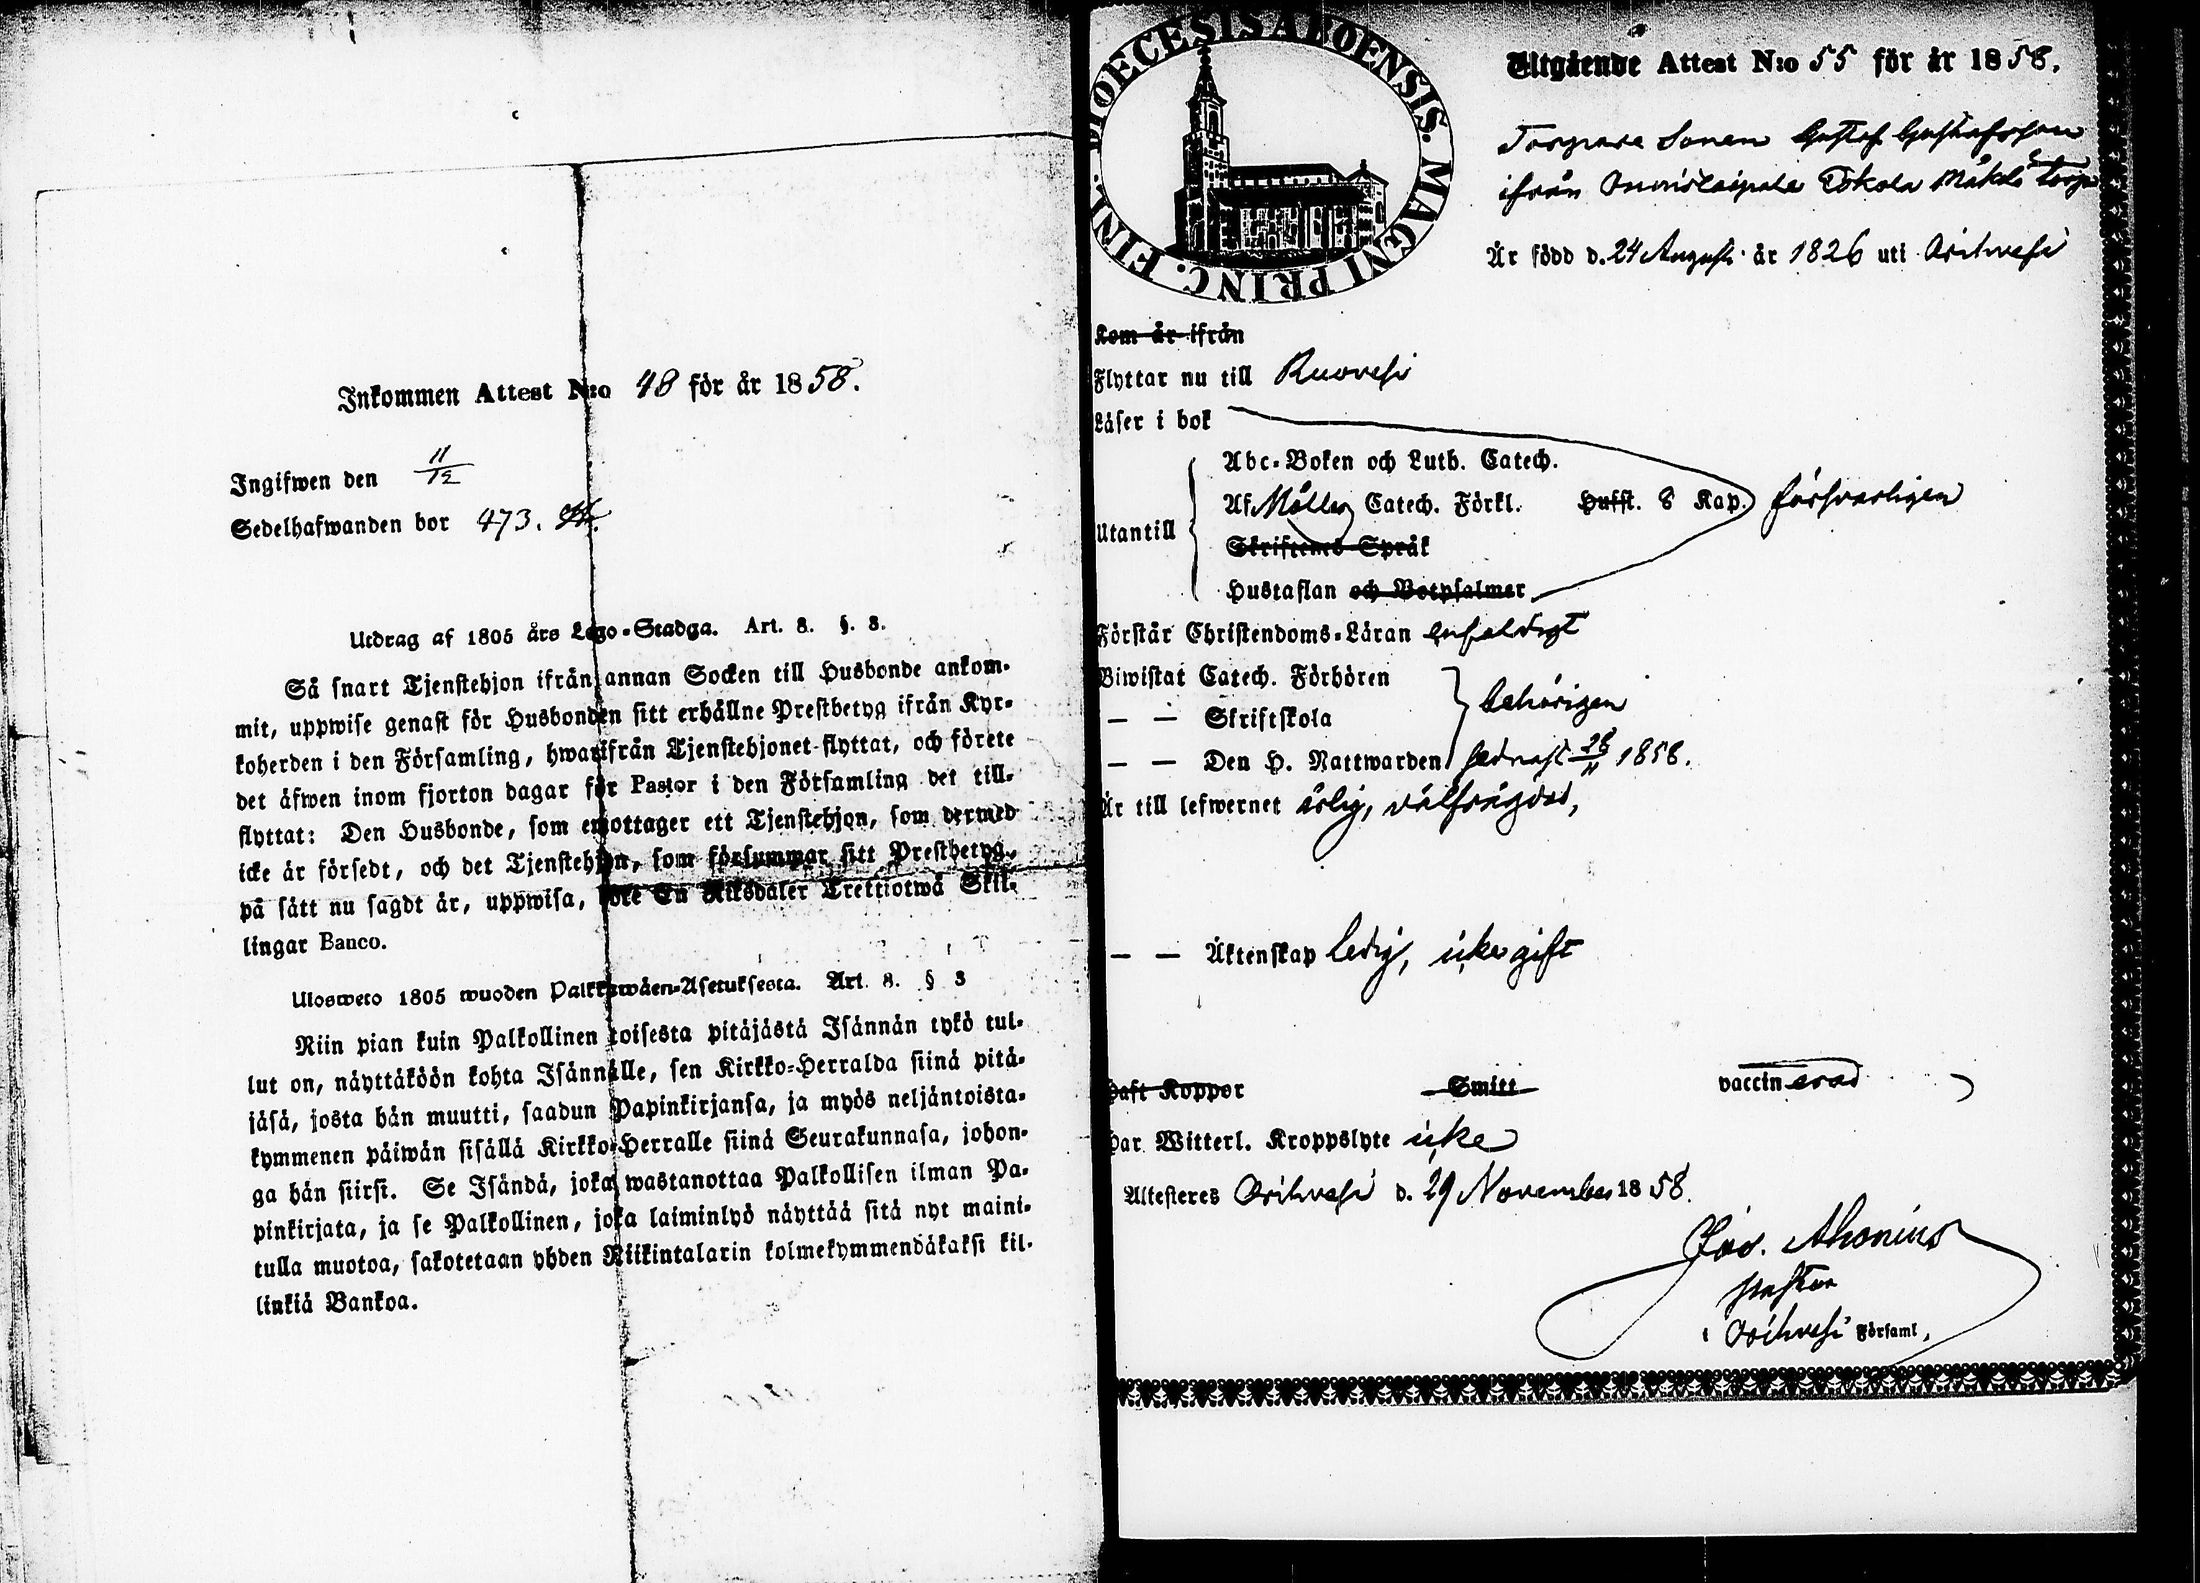 Inkommen Attest N:o 48 för år 1858.
Ingifwen den 11/12
Sedelhafwanden bor 473.
Utdrag af 1805 års Lego-Stadga. Art. 8. §. 3.
Så snart Tjenstehjon ifrån annan Socken till Husbonde ankom-
mit, uppwise genast för Husbonden sitt erhållne Prestbetyg ifrån Kyr-
koherden i den Församling, hwarifrån Tjenstehjonet flyttat, och förete
det äfwen inom fjorton dagar för Pastor i den Församling det till-
flyttat: Den Husbonde, som emottager ett Tjenstehjon, som dermed
icke är försedt, och det Tjenstehjon, som försummar sitt Prestbetyg,
på sätt nu sagdt är, uppwisa, böte En Riksdaler Trettiotwå Skil-
lingar Banco.
Ulosweto 1805 wuoden Palkkawäen-Asetuksesta. Art. 8. § 3
Niin pian kuin Palkollinen toisesta pitäjästä Isännän tykö tul-
lut on, näyttäköön kohta Isännälle, sen Kirkko-Herralda siinä pitä-
jäsä, josta hän muutti, saadun Papinkirjansa, ja myös neljäntoista-
kymmenen päiwän sisällä Kirkko-Herralle siinä Seurakunnasa, johon-
ga hän siirsi. Se Isändä, joka wastanottaa Palkollisen ilman Pa-
pinkirjata, ja se Palkollinen, joka laiminlyö näyttää sitä nyt maini-
tulla muotoa, sakotetaan yhden Riikintalarin kolmekymmendäkaksi kil-
linkiä Bankoa.
DIOECESIS ABOENSIS. MAGNI PRINC. FINL.
Utgående Attest N:o 55 för år 1858.
Torpare Sonen Gustaf Gustafsson
ifrån Onnistaipale Eskola Mäkelä Torp
Är född d. 24 Augusti år 1826 uti Orihvesi
Kom år ifrån
Flyttar nu till Ruovesi
Läser i bok
Abc-Boken och Luth. Catech.
Utantill
Af Möller Catech. Förkl. Hufst. 8 Kap. försvarligen
Skriftenes Språk
Hustaflan och Botpsalmer
Förstår Christendoms-Läran enfaldigt
Biwistat Catech. Förhören
— — Skriftskola behörigen
— — Den H. Nattwarden sednast 28/11 1858.
Är till lefwernet ärlig, välfrägdad,
— — Äktenskap ledig, icke gift
Haft Koppor Smitt vaccinerad
Har Witterl. Kroppslyte icke
Attesteres Orihvesi d. 29 November 1858.
Jos. Ahonius
pastor
i Orihvesi Församl.